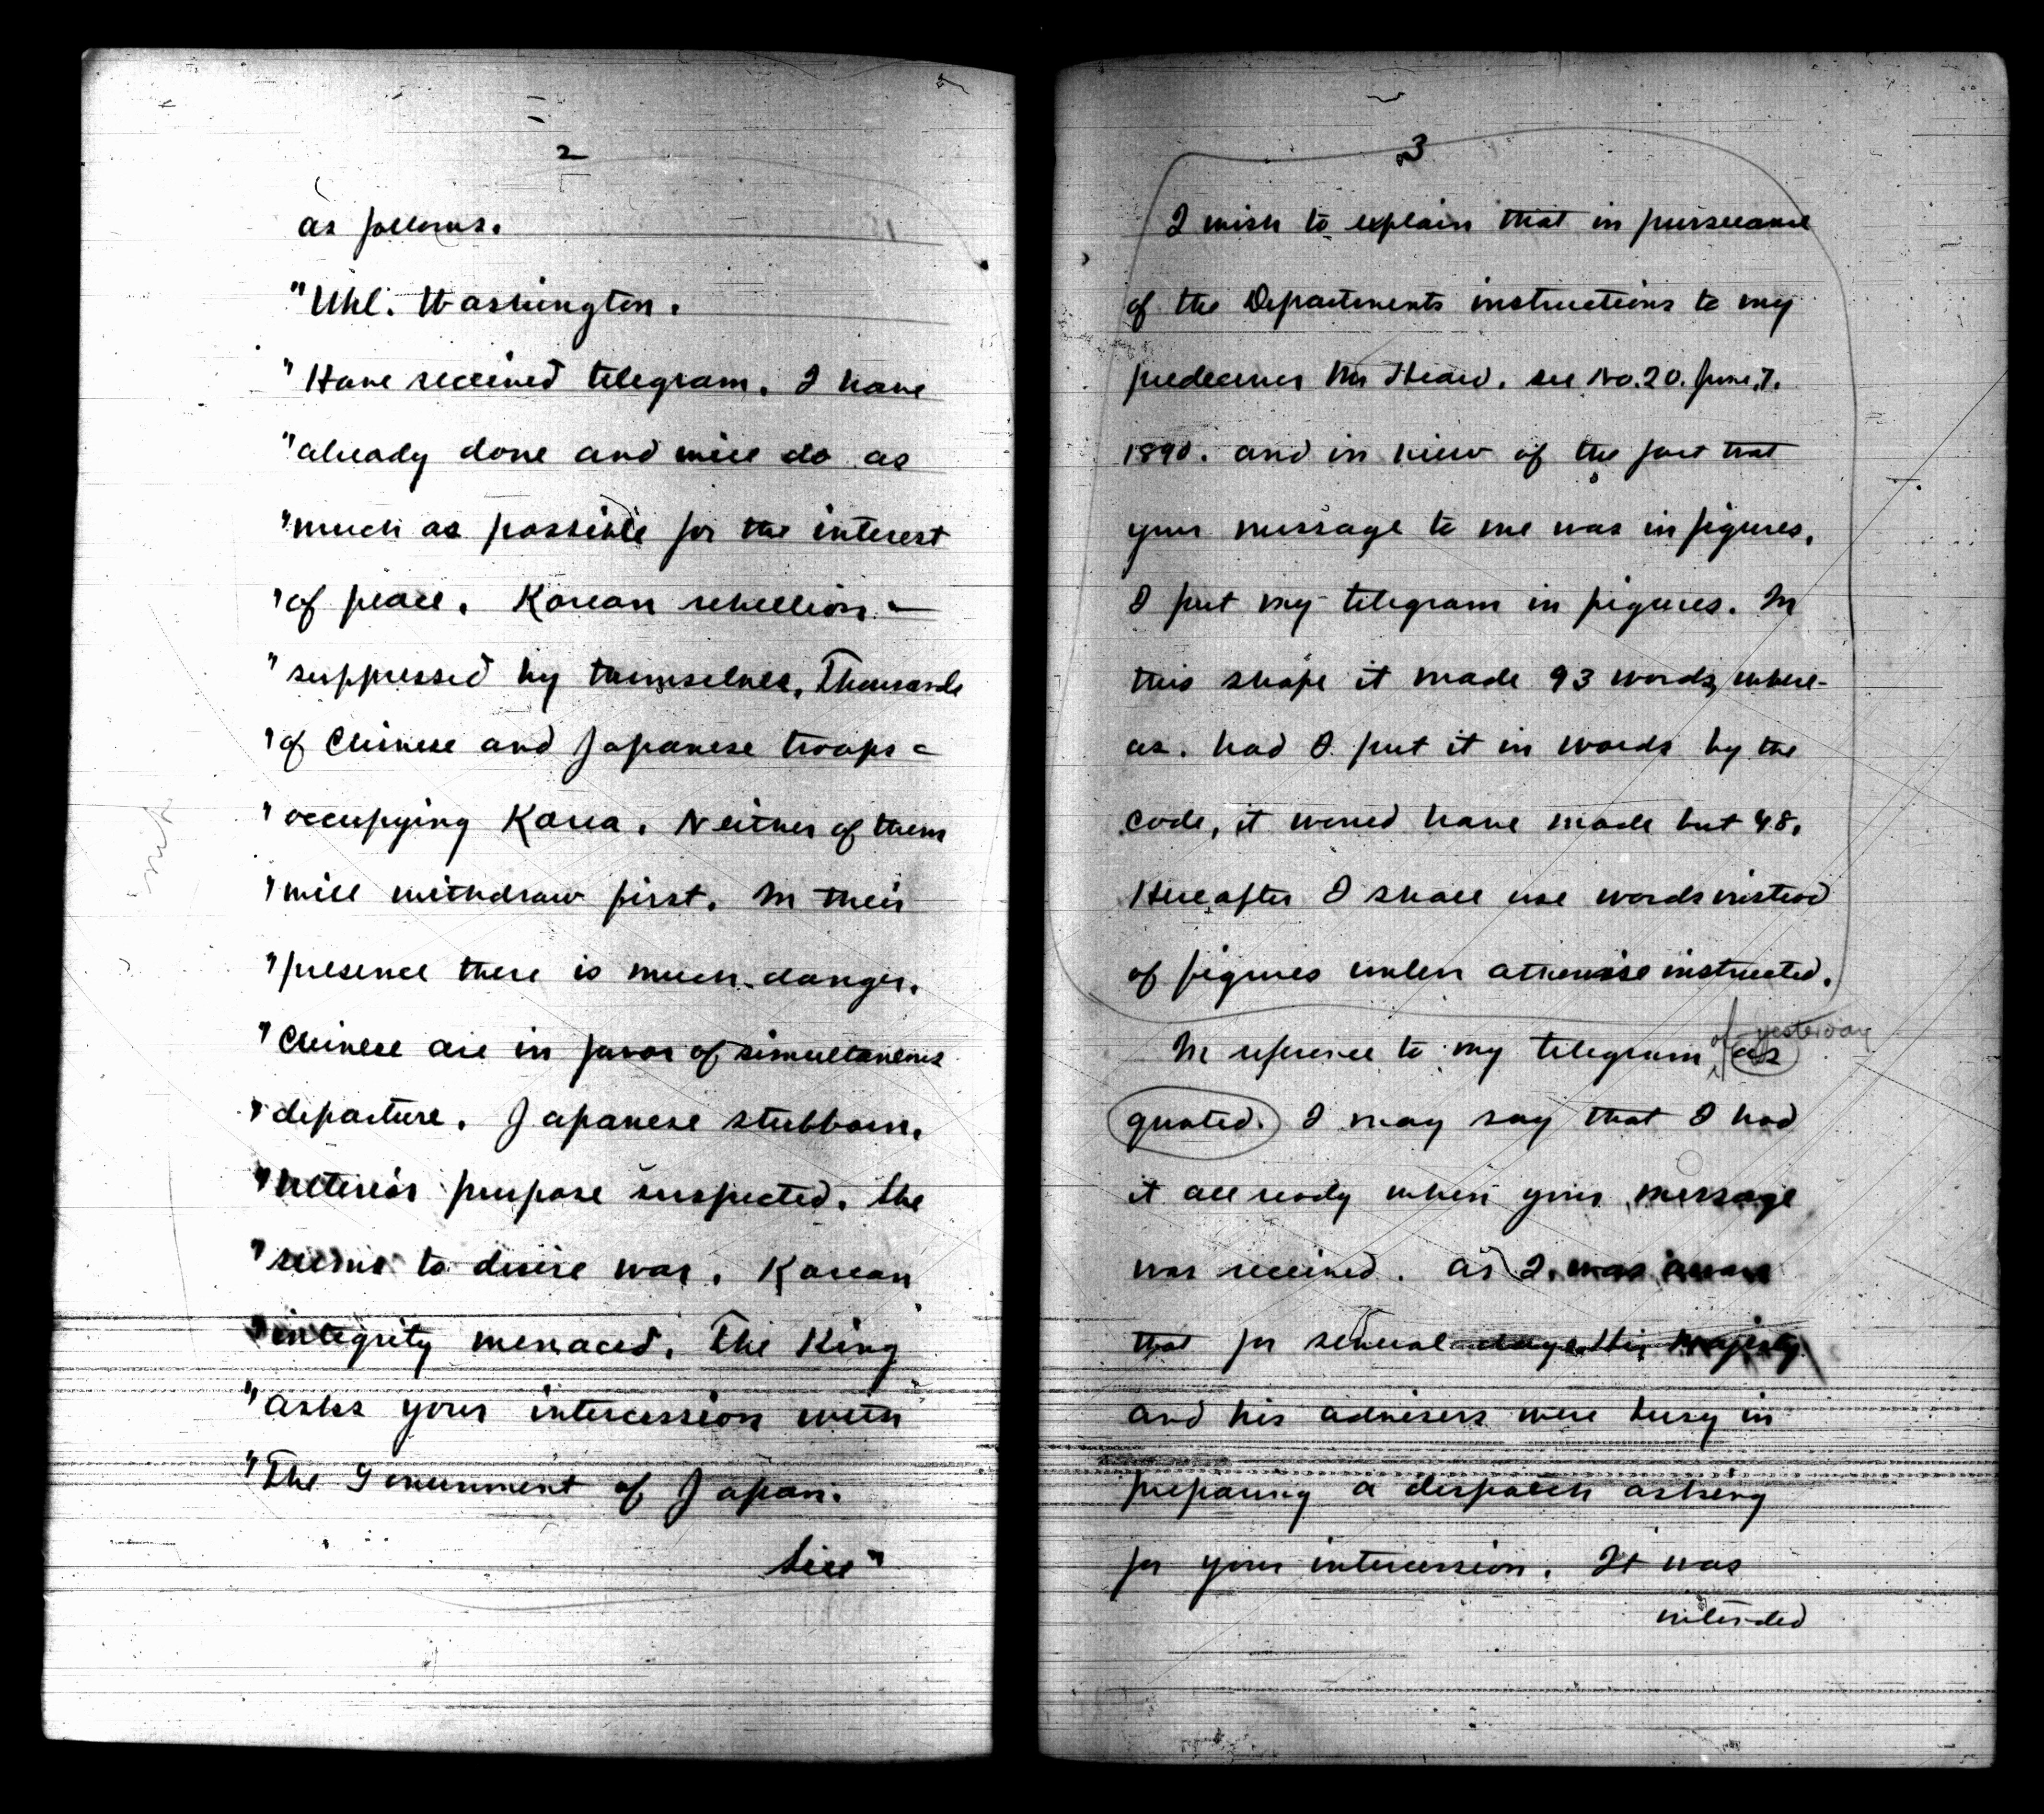 2
as follows.
"Uhl. Washington.
"Have received telegram. I have
"already done and will do as
"much as possible for the interest
"of peace. Korean rebellion —
"suppressed by themselves. Thousands
"of Chinese and Japanese troops -
"occupying Korea. Neither of them
"will withdraw first. In their
"presence there is much danger.
"Chinese are in favor of simultaneous
"departure. Japanese stubborn.
"Ulterior purpose suspected. She
"seems to desire war. Korean
"integrity menaced. The King
"asks your intercession with
"The Government of Japan.
Sill"
3
I wish to explain that in pursuance
of the Departments instructions to my
predecessor Mr Heard. see No. 20. June, 7.
1890. and in view of the fact that
your message to me was in figures,
I put my telegram in figures. In
this shape it made 93 words, where-
as. had I put it in words by the
code, it would have made but 48.
Hereafter I shall use words instead
of figures unless otherwise instructed.
of yesterday
In reference to my telegram as
quoted. I may say that I had
it all ready when your message
was received. as I was aware
that for several days His Majesty
and his advisers were busy in
preparing a dispatch asking
for your intercession. It was
intended